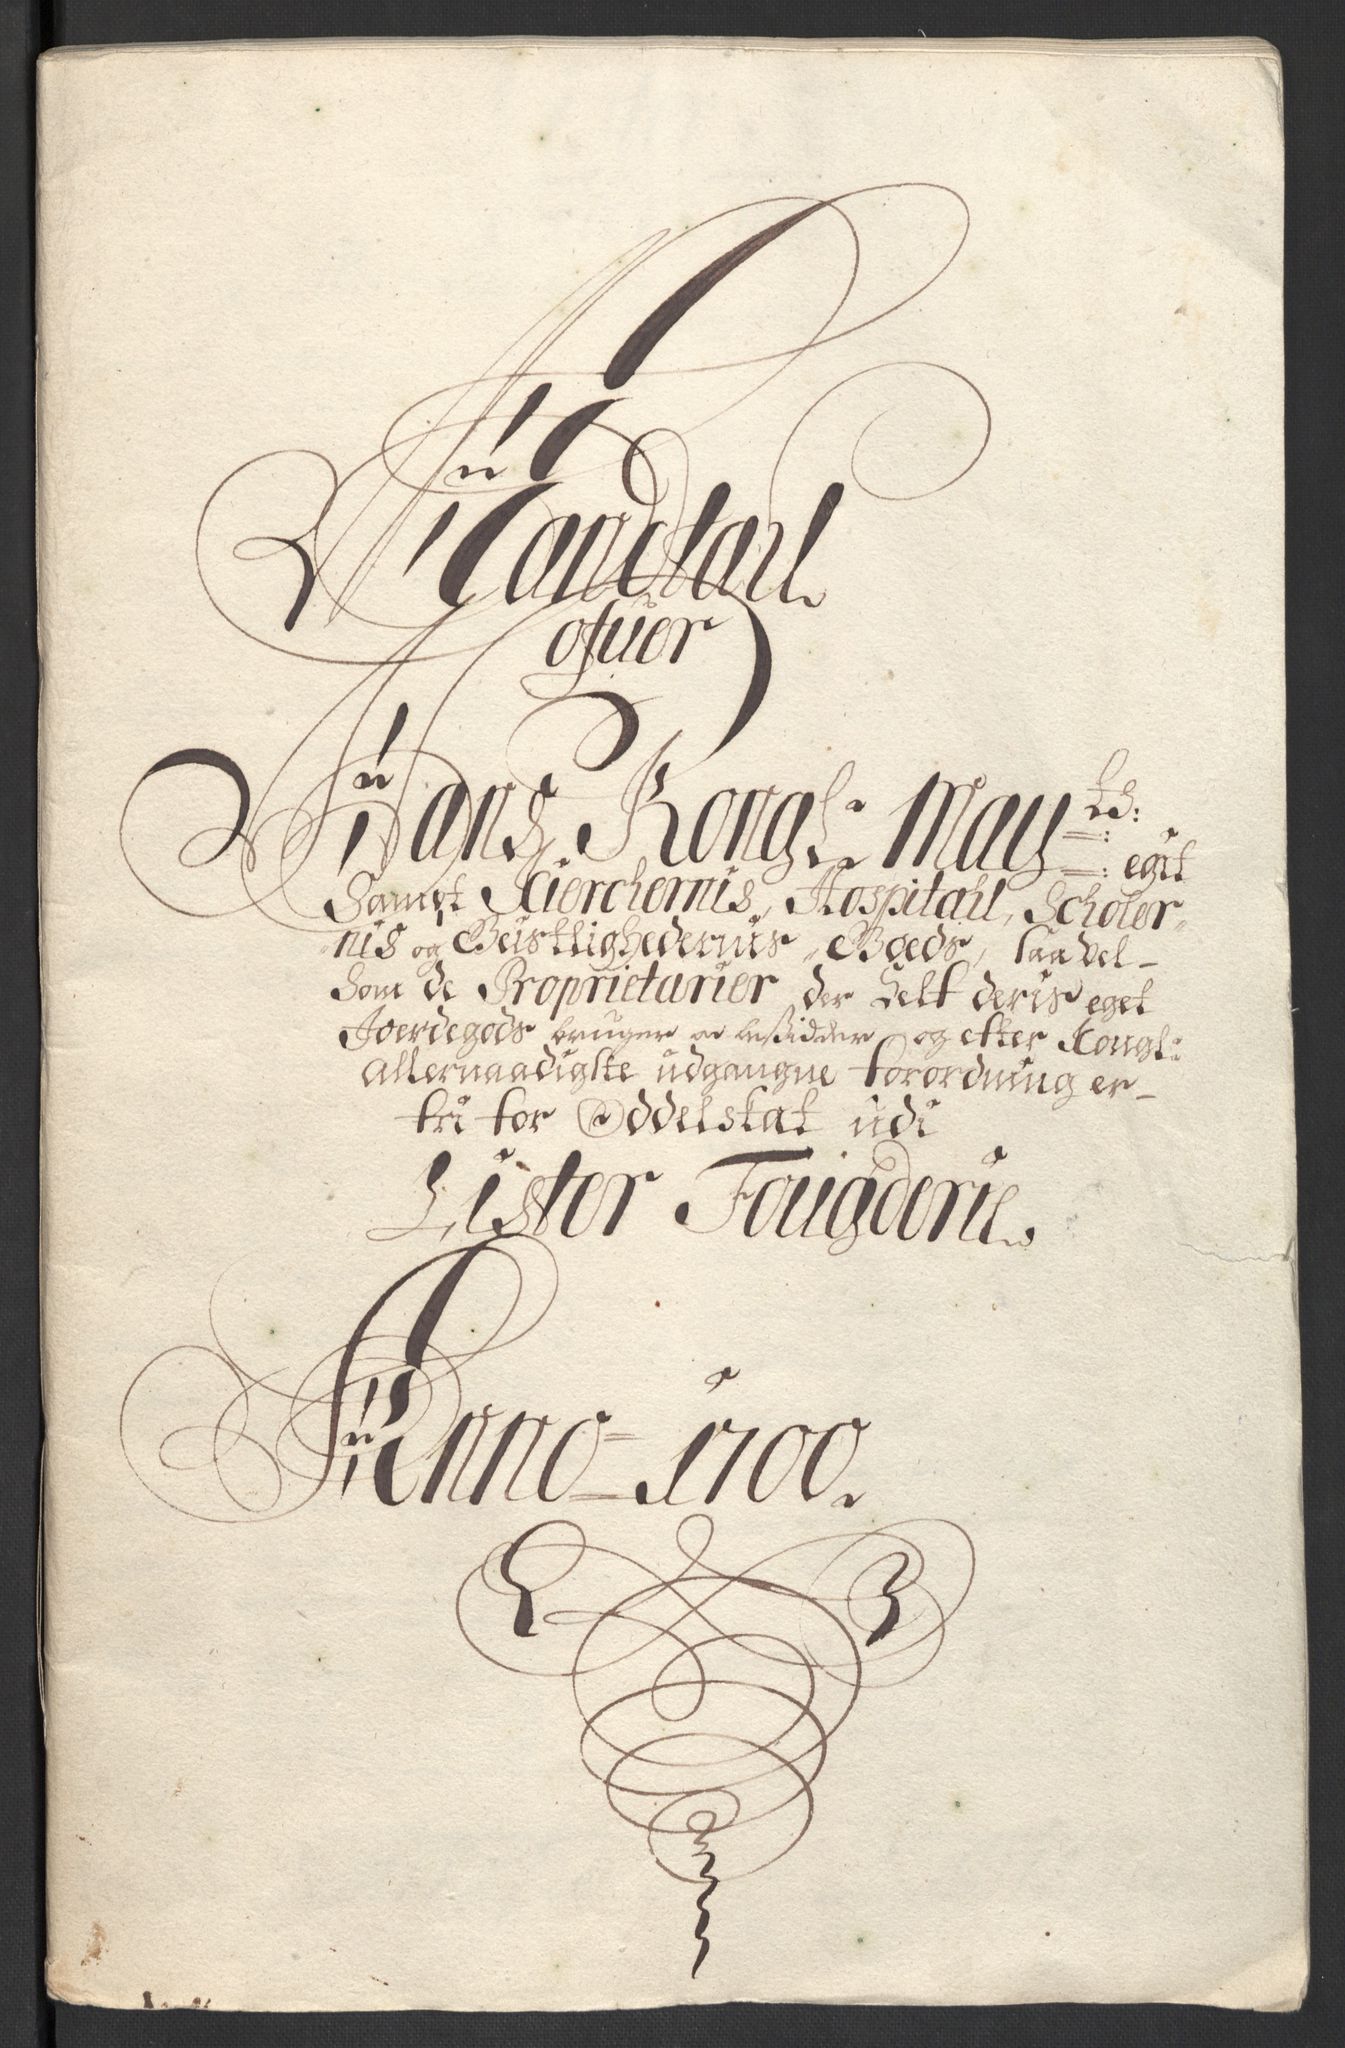 Mandtall
ofuer
Hans Kongl: May:tts: eget
Sampt Kierchernis, Hospitahl, Scholer-
nis og Geistlighedernis Goeds, saavel-
Som de Proprietarier der Self deris eget
Joerdegods bruger oc besidder og efter Kongl:
allernaadigste udgangne forordning er-
fri for Oddelskat udi
Lister Fougderie
Anno 1700.